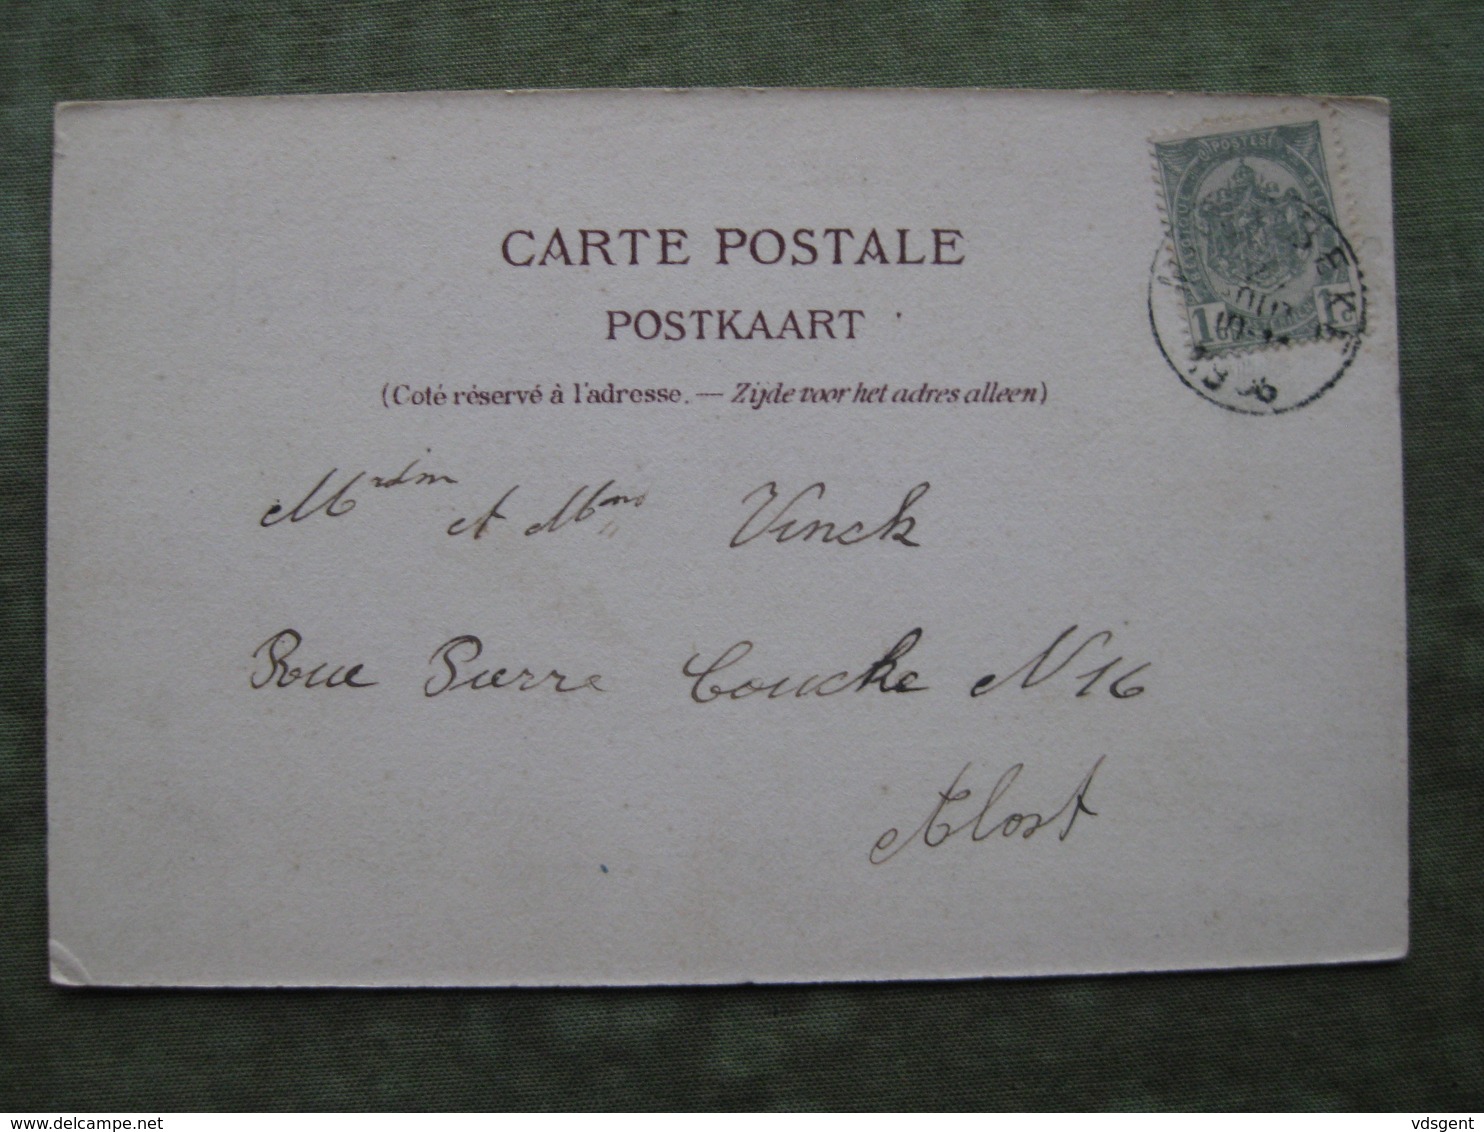 CARTE POSTALE
POSTKAART
(Coté réservé à l'adresse. — Zijde voor het adres alleen)
et Vinck
Rue Pierre Coucke N 16
Alost
POSTES
1 1
www.delcampe.net
vdsgent